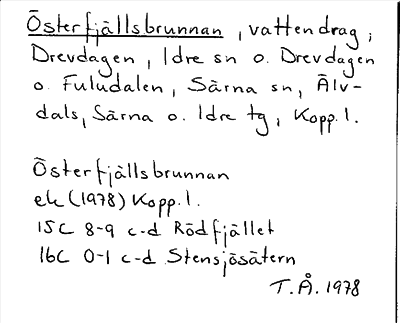 Österfjällsbrunnan, vattendrag,
Drevdagen, Idre sn o. Drevdagen
o. Fuludalen, Särna sn, Älv-
dals, Särna o. Idre tg, Kopp. l.
Österfjällsbrunnan
ek (1978) Kopp. l.
15C 8-9 c-d Rödfjället
16C 0-1 c-d Stensjösätern
T.Å. 1978